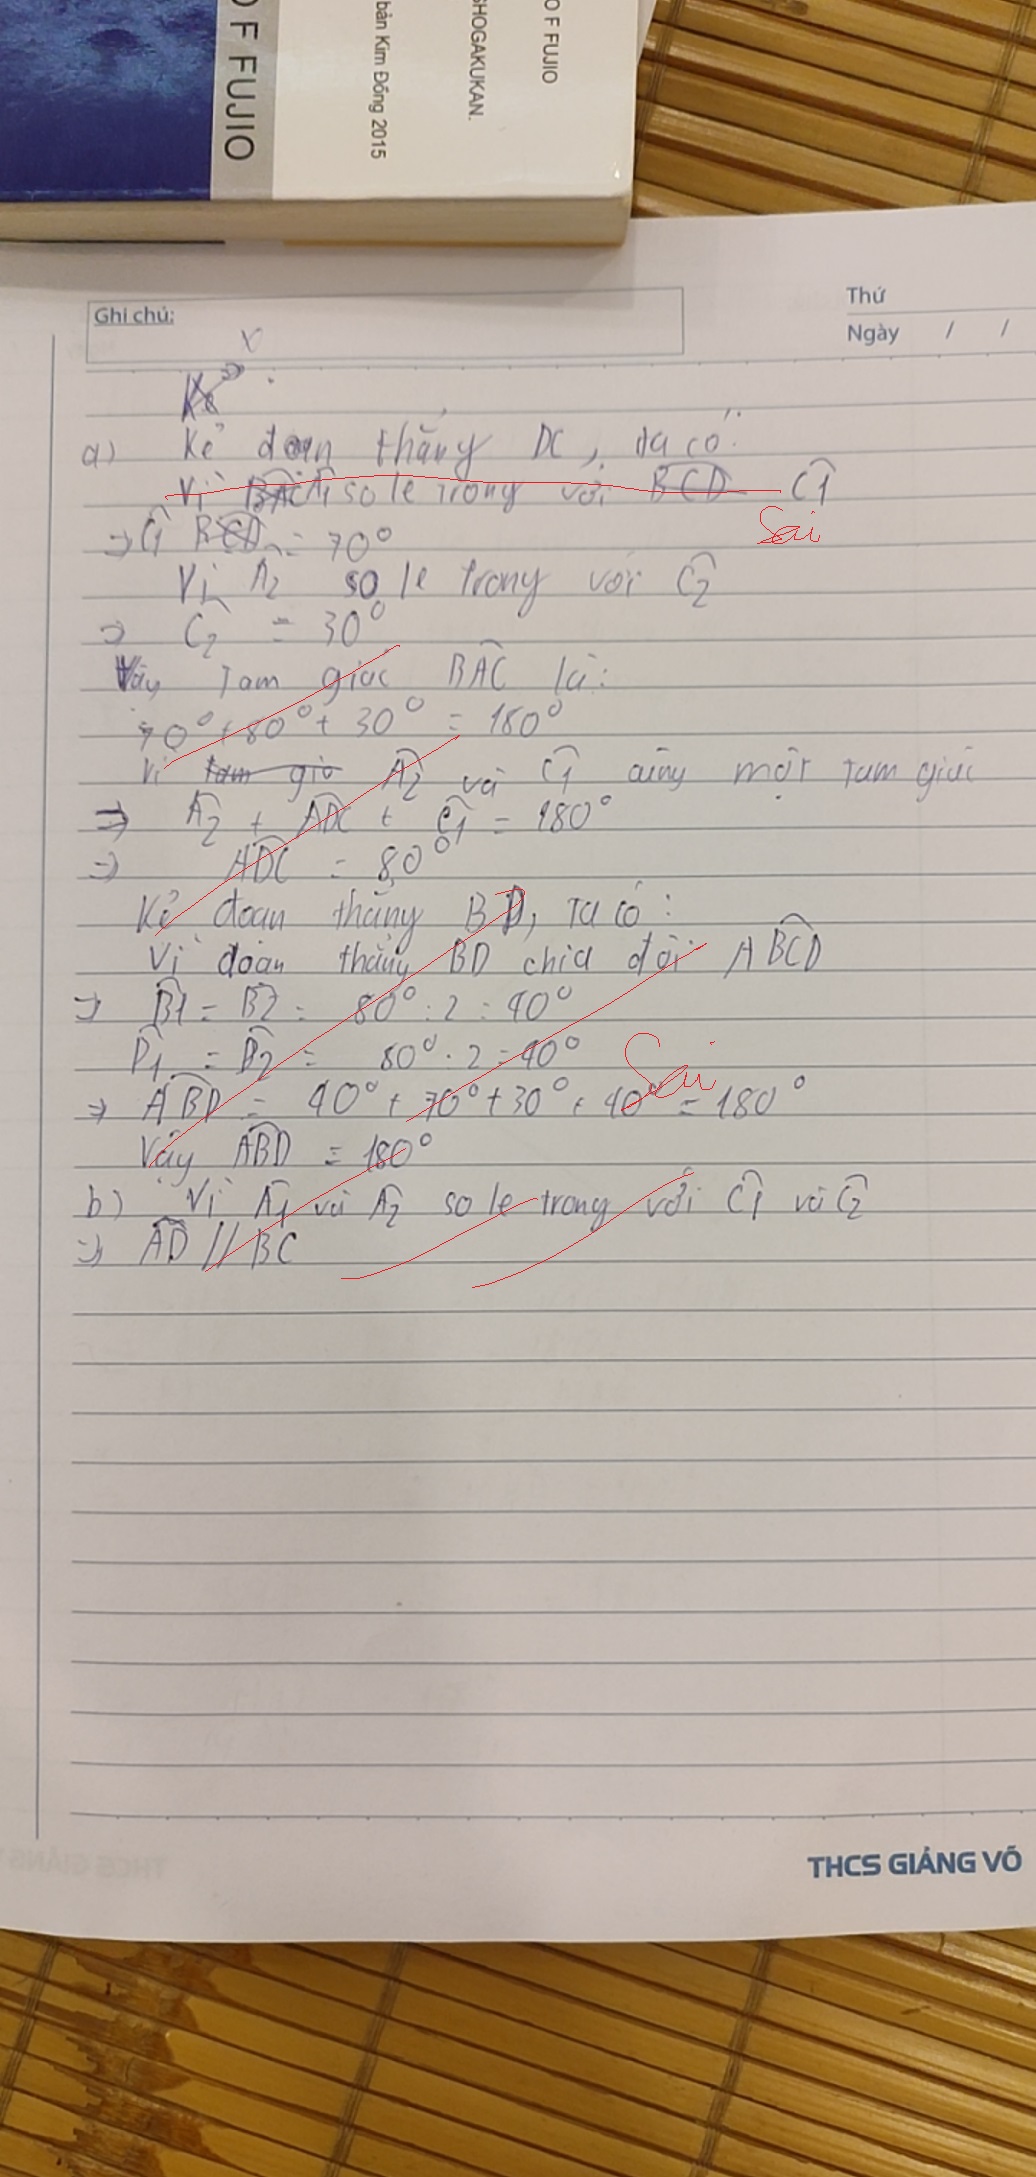 O F FUJIO
bản Kim Đồng 2015
SHOGAKUKAN.
O F FUJIO
Ghi chú:
Thứ
Ngày / /
x
Kẻ
a) Kẻ đoạn thẳng DC, ta có:
Vì BAC Â1 so le trong với BCD Ĉ1
Sai
=> Ĉ1 BCD = 70°
Vì Â2 so le trong với Ĉ2
=> Ĉ2 = 30°
Vậy Tam giác BAC là:
70° + 80° + 30° = 180°
Vì tam giá Â2 và Ĉ1 cùng một tam giác
=> Â2 + ADC + Ĉ1 = 180°
=> ADC = 80°
Kẻ đoạn thẳng BD, Ta có:
Vì đoạn thẳng BD chia đôi ABCD
=> B̂1 = B̂2 = 80° : 2 = 40°
D̂1 = D̂2 = 80° : 2 = 40°
Sai
=> ABD = 40° + 70° + 30° + 40° = 180°
Vậy ABD = 180°
b) Vì Â1 và Â2 so le trong với Ĉ1 và Ĉ2
=> AD // BC
THCS GIẢNG VÕ